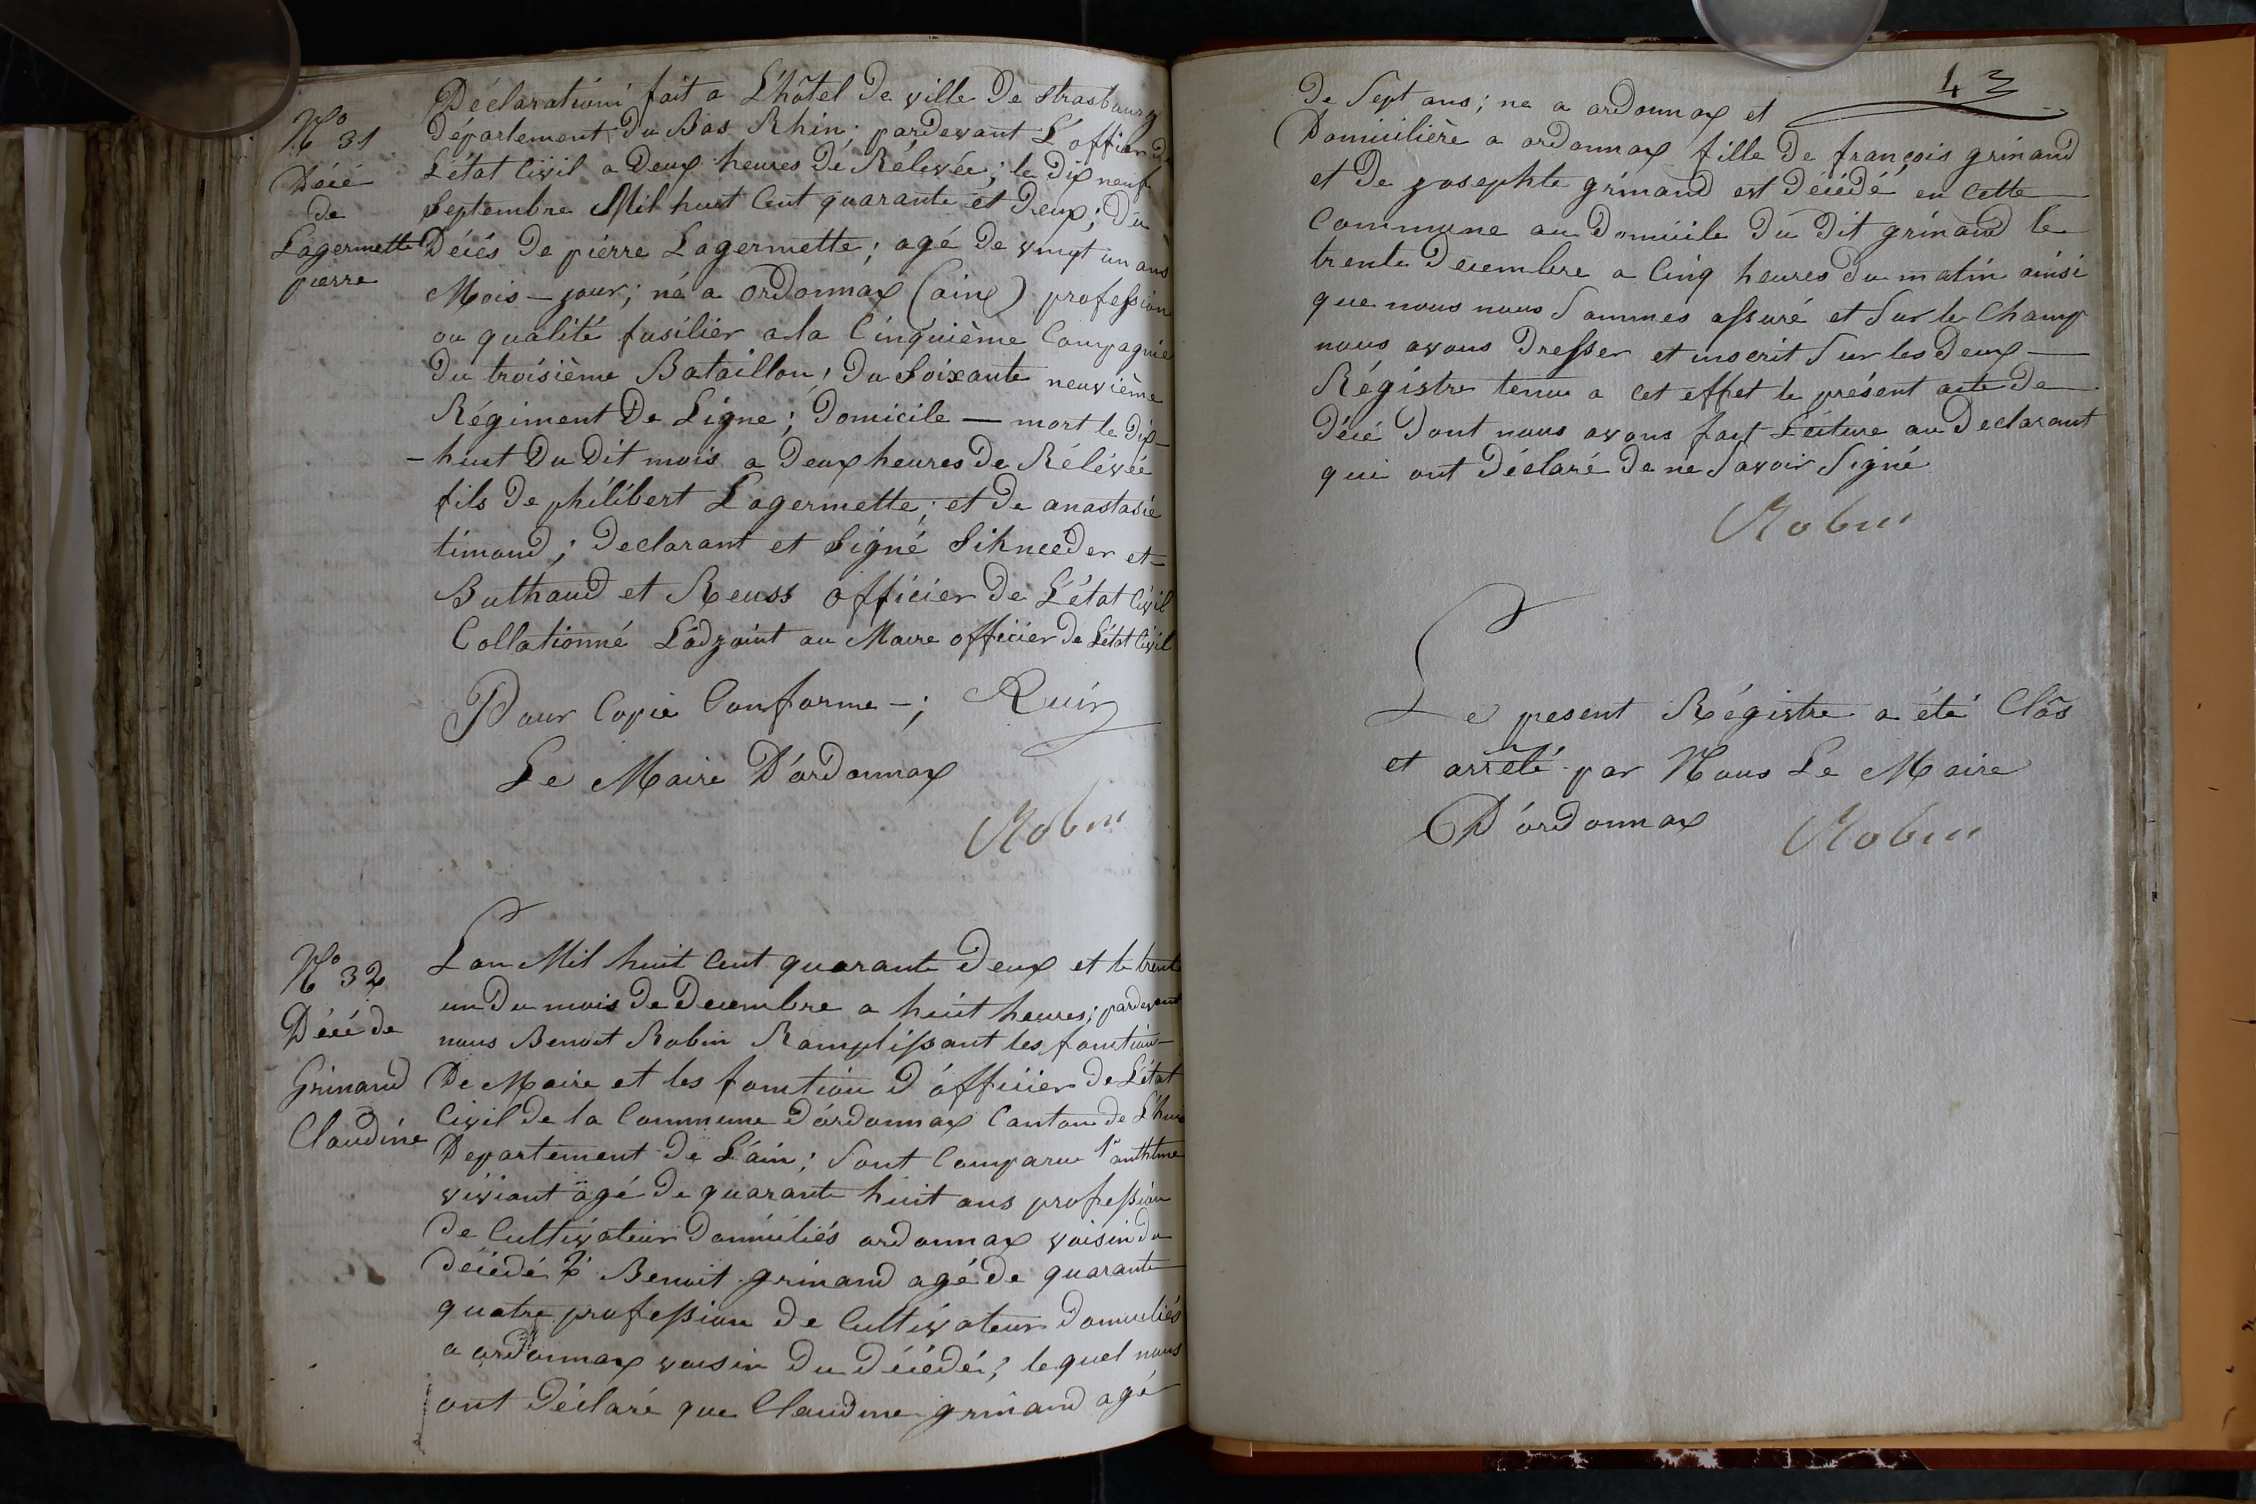 N° 31
Décé
de
Lagermette
pierre
Déclaration fait a L'hôtel De ville De strasbourg
Département Du Bas Rhin pardevant L'officier de
L'état Civil a Deux heures De Rélevée; le Dix neuf
Septembre Mil huit Cent quarante et Deux; Du
Décés De piérre Lagermette; agé de vingt un ans
Mois — jour; né a ordonnax (ain) profession
ou qualité fusilier a la Cinquième Compagnie
Du troisième Bataillon, Du Soixante neuvième
Régiment De Ligne; Domicile — mort le Dix-
-huit Du Dit mois a Deux heures De Rélévée
fils De philibert Lagermette; et De anastasie
timand; Declarant et Signé Schneeder et
Buthaud et Reuss officier De L'état Civil
Collationné L'adjoint au Maire officier De L'état Civil
Pour Copie Conforme —;
Le Maire D'ordonnax
Robin
N° 32
Décé de
Grinand
Claudine
L'an Mil huit Cent quarante Deux et le trente
un Du mois De Decembre a huit heures; pardevant
nous Benoit Robin Ramplissant les fonction
De Maire et les fonction D'officier De L'état
Civil De la Commune D'ordonnax Canton De
Departement De L'ain; Sont Comparu 1° anthtme
viviant agé De quarante huit ans profession
De Cultivateur Domiciliés ordonnax voisin Du
Décédé 2° Benoit grinand agé De quarante
quatre profession De Cultivateur Domiciliés
a ordonnax voisin Du Décédé; lequel nous
ont Déclaré que Claudine grinand agé
43
De Sept ans; ne a ordonnax et
Domicilière a ordonnax fille De françois grinand
et De josephte grinand est Décédé en Cette
Commune au Domicile Du Dit grinand le
trente Decembre a Cinq heures Du matin ainsi
que nous nous Sommes assuré et Sur le Champ
nous avons Dresser et inscrit Sur les Deux
Régistre tenu a Cet effet le présent acte De
Décé Dont nous avons fait Lécture au Declarant
qui ont Déclaré De ne Savoir Signé
Robin
Le present Régistre a été Clôs
et arrêlé par Nous Le Maire
D'ordonnax Robin